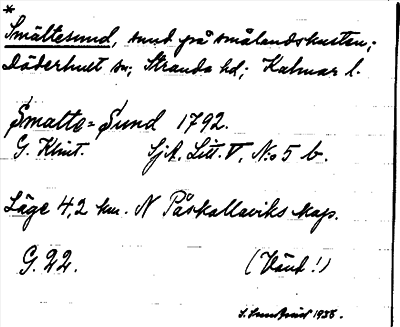 *
Smältesund, sund på smålandskusten;
Döderhult sn; Stranda hd; Kalmar l.
Smalte=Sund 1792.
G. Klint. SjA. Litt. V, No 5 b.
Läge 4,2 km. N Påskallaviks kap.
G. 22. (Vänd!)
1938.